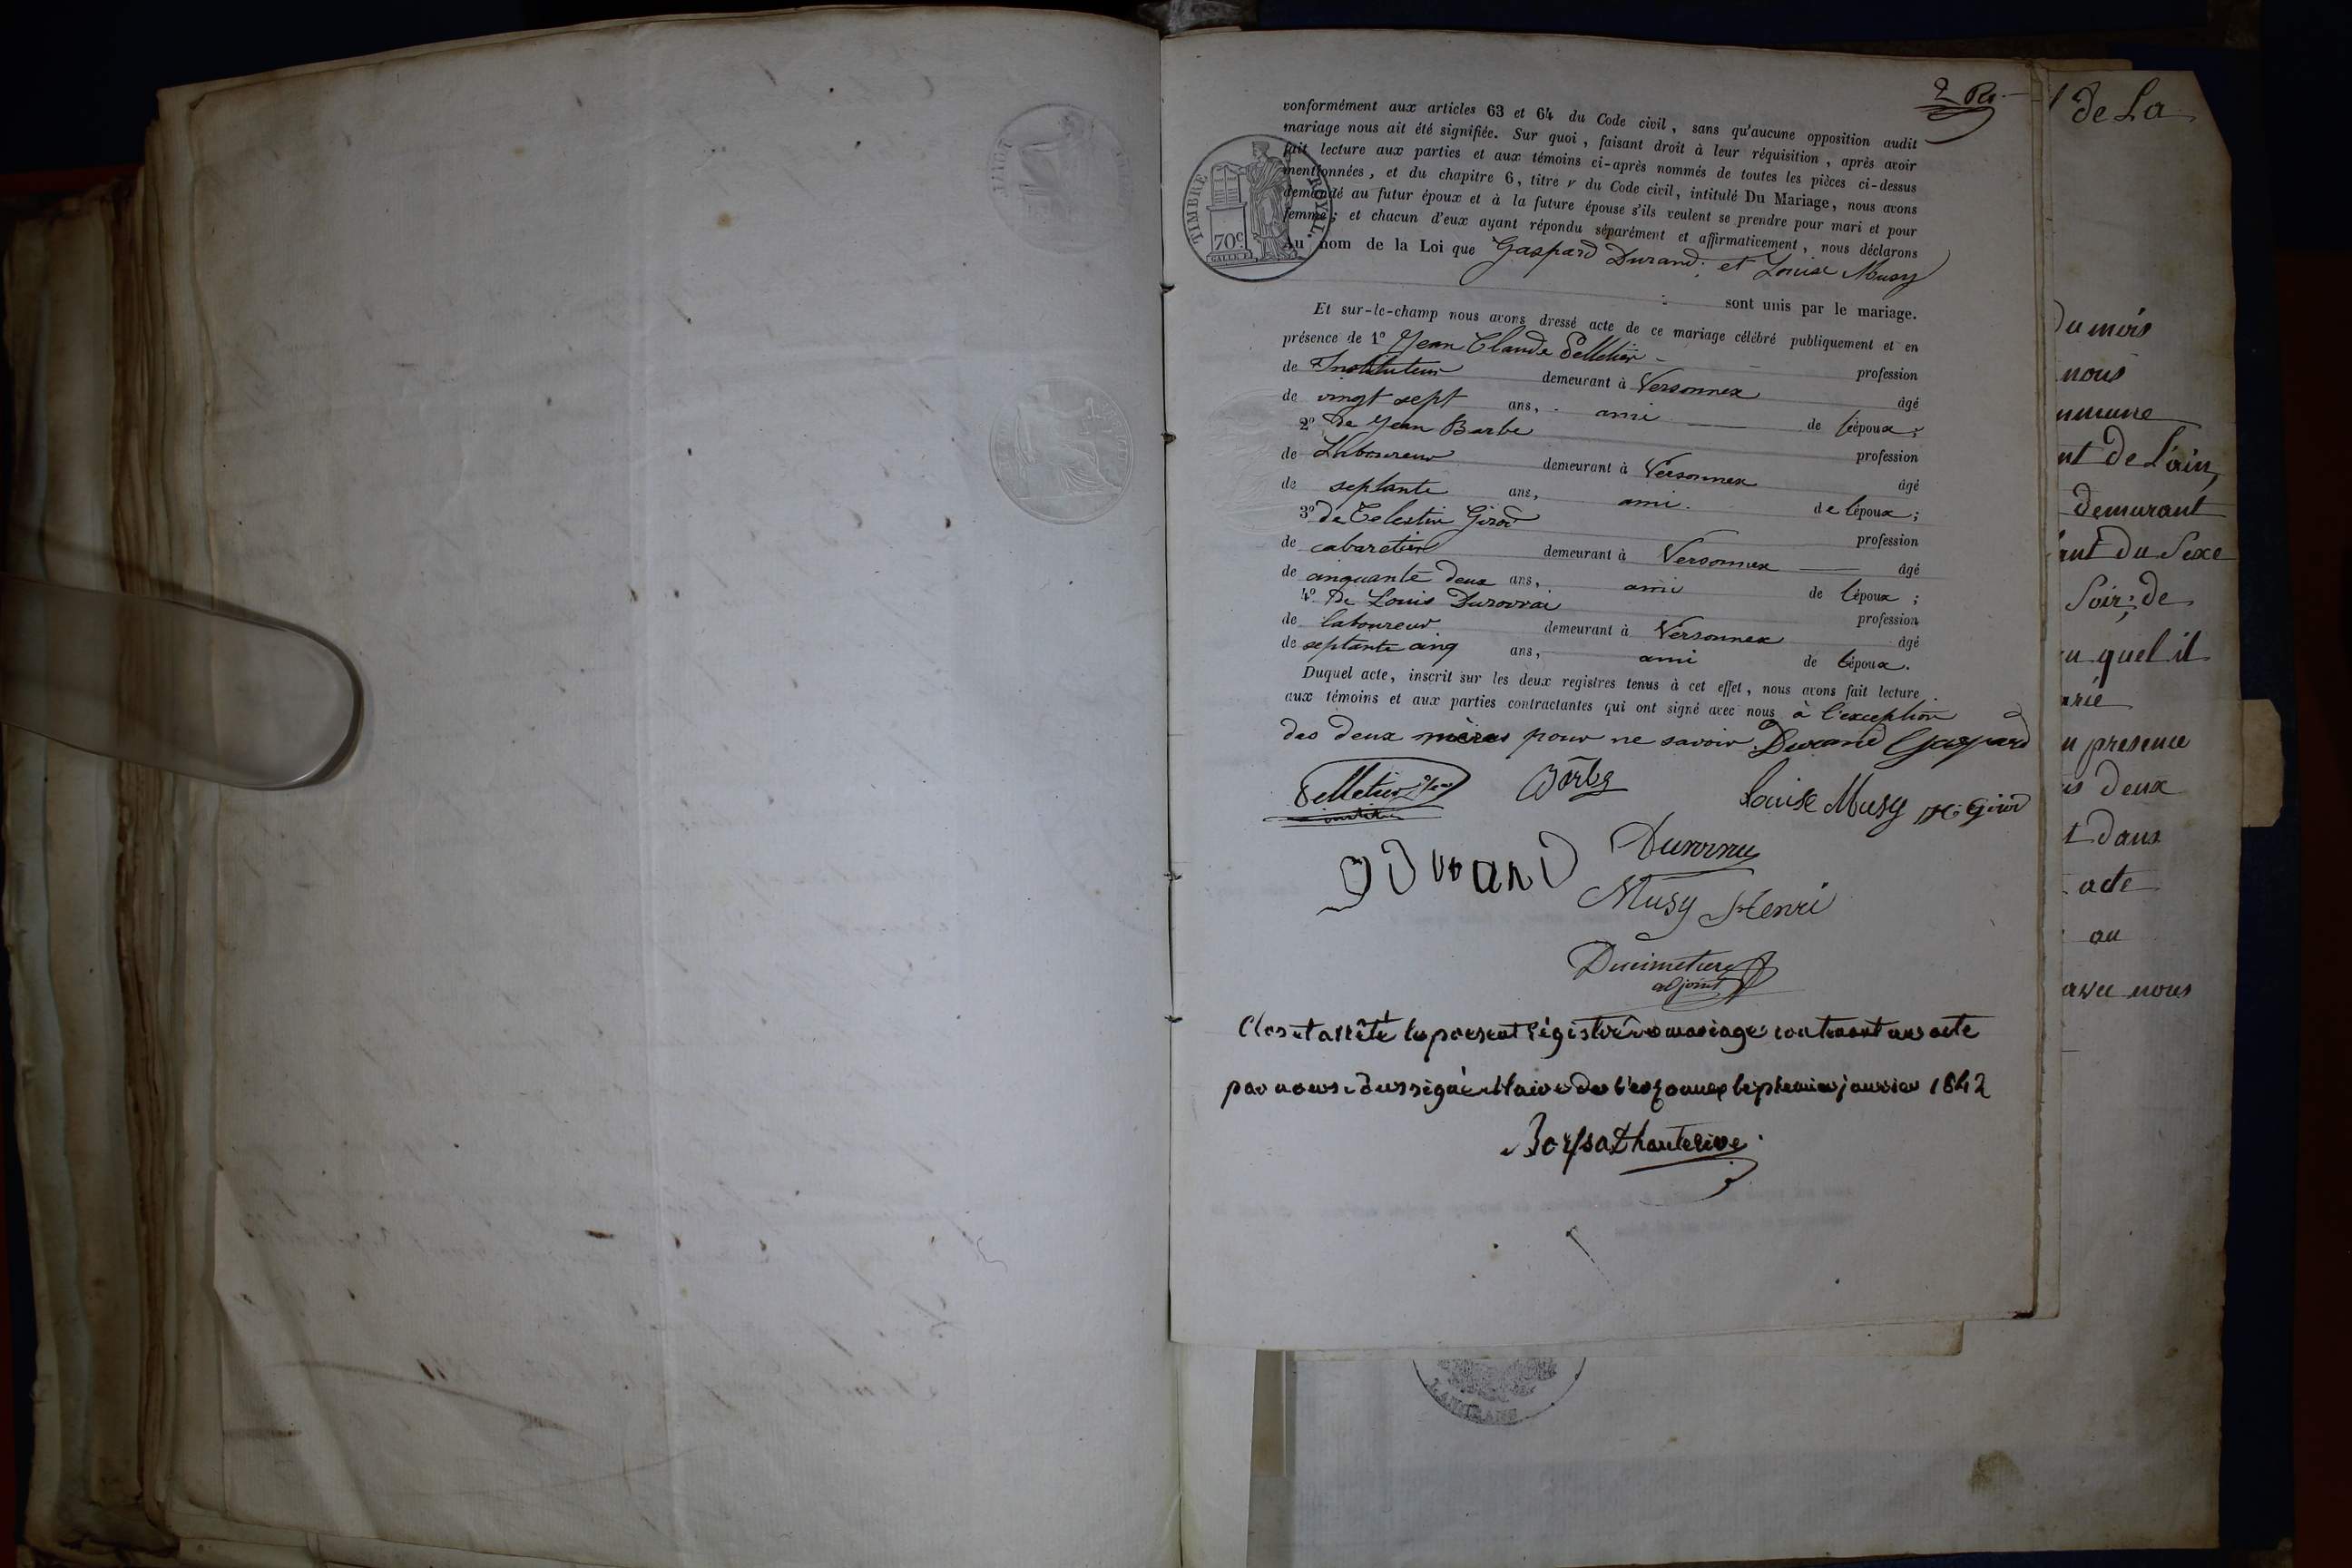 2 Rs.
conformément aux articles 63 et 64 du Code civil, sans qu'aucune opposition audit
mariage nous ait été signifiée. Sur quoi, faisant droit à leur réquisition, après avoir
fait lecture aux parties et aux témoins ci-après nommés de toutes les pièces ci-dessus
mentionnées, et du chapitre 6, titre v du Code civil, intitulé Du Mariage, nous avons
demandé au futur époux et à la future épouse s'ils veulent se prendre pour mari et pour
femme; et chacun d'eux ayant répondu séparément et affirmativement, nous déclarons
Au nom de la Loi que Gaspard Durand; et Louise Musy
sont unis par le mariage.
TIMBRE ROYAL.
70c
Et sur-le-champ nous avons dressé acte de ce mariage célébré publiquement et en
présence de 1º Jean Claude Pelletier profession
de Instituteur demeurant à Versonnex âgé
de vingt sept ans, ami de l'époux;
2º De Jean Barbe profession
de Laboureur demeurant à Versonnex âgé
de septante ans, ami. de l'époux;
3º De Celestin Girod profession
de cabaretier demeurant à Versonnex âgé
de cinquante deux ans, ami de l'époux;
4º De Louis Durovrai profession
de laboureur demeurant à Versonnex âgé
de septante cinq ans, ami de l'époux.
Duquel acte, inscrit sur les deux registres tenus à cet effet, nous avons fait lecture
aux témoins et aux parties contractantes qui ont signé avec nous à l'exception
des deux mères pour ne savoir. Durand Gaspard
Pelletier
Barbe
Louise Musy
Girod
Durand
Musy Henri
Ducimetiere
adjoint
Clos et arrêté le present régistre de mariage contenant un acte
par nous sousigné Maire de Versonnex le premier janvier 1842
hauterive
de La
Du mois
nous
mmune
nt de l'ain,
demeurant
ant du Sexe
Soir; de
u quel il
arié
n presence
deux
t dans
acte
au
avec nous